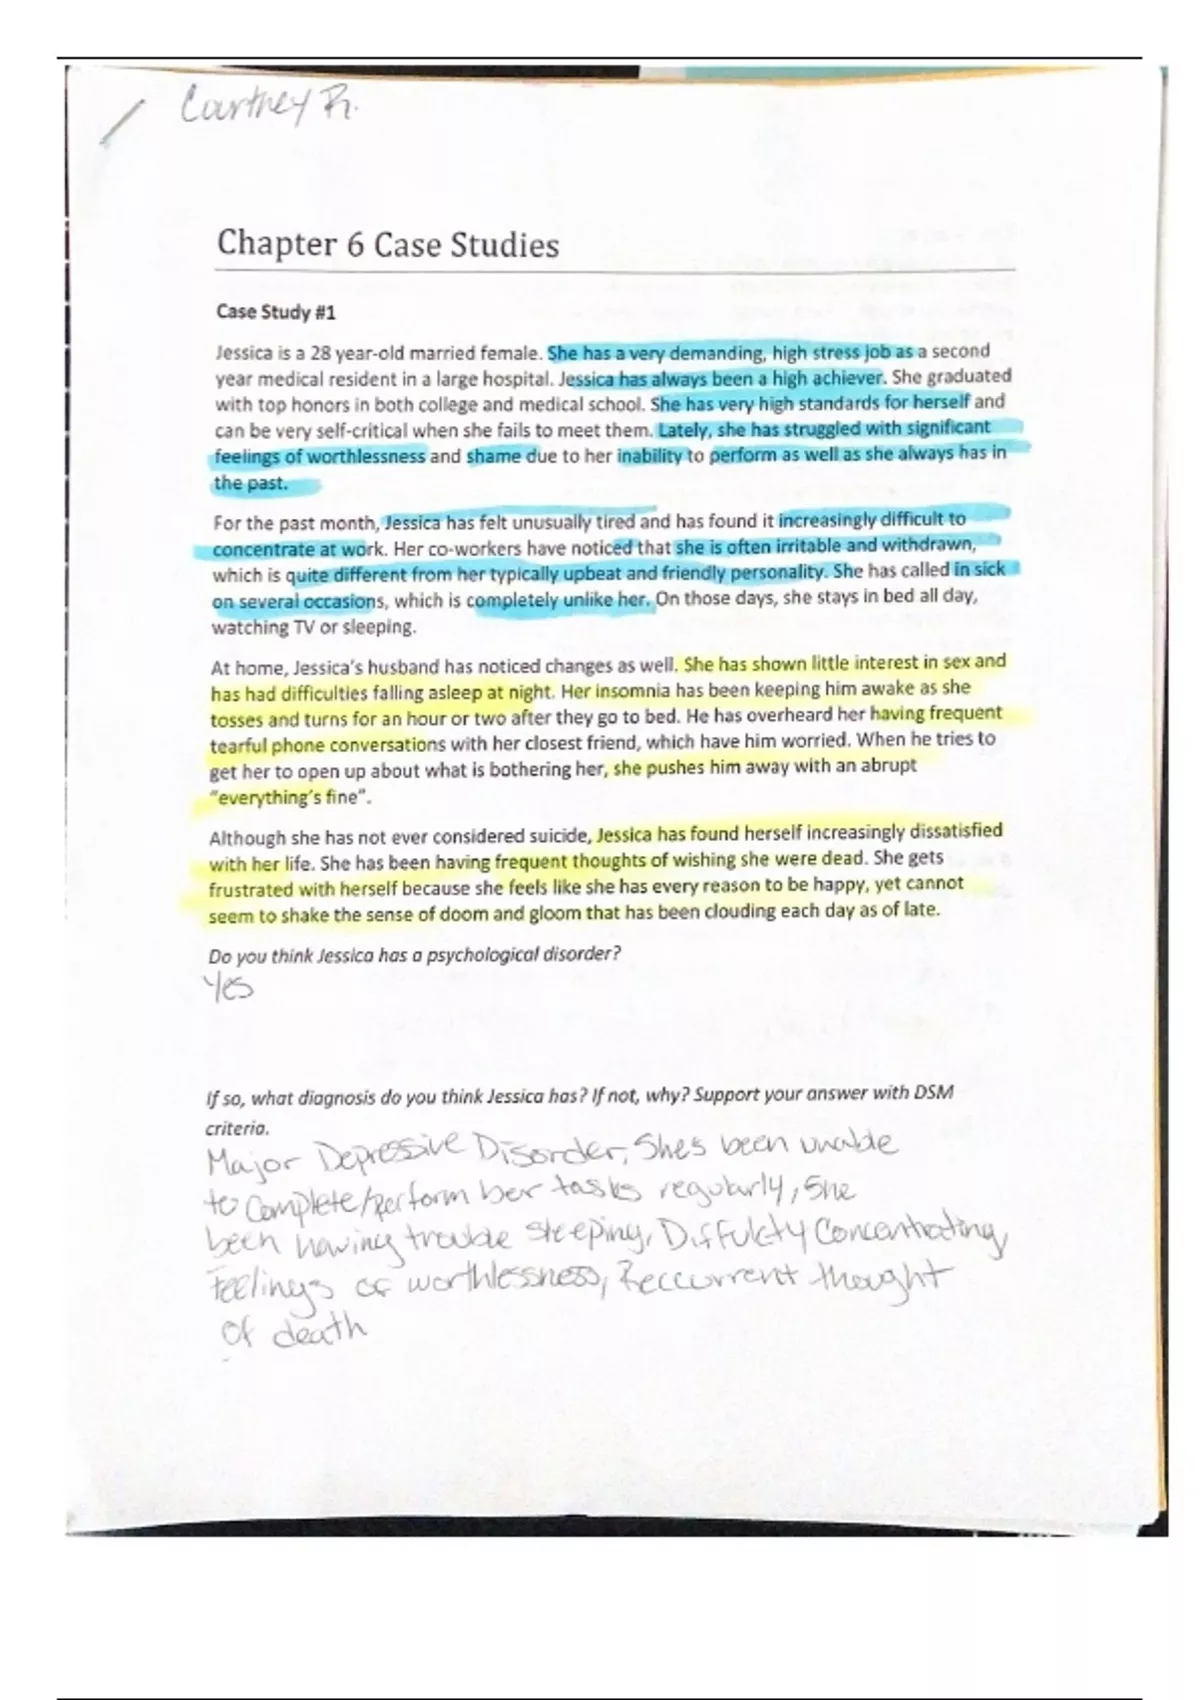 Courtney R.
Chapter 6 Case Studies
Case Study #1
Jessica is a 28 year-old married female. She has a very demanding, high stress job as a second
year medical resident in a large hospital. Jessica has always been a high achiever. She graduated
with top honors in both college and medical school. She has very high standards for herself and
can be very self-critical when she fails to meet them. Lately, she has struggled with significant
feelings of worthlessness and shame due to her inability to perform as well as she always has in
the past.
For the past month, Jessica has felt unusually tired and has found it increasingly difficult to
concentrate at work. Her co-workers have noticed that she is often irritable and withdrawn,
which is quite different from her typically upbeat and friendly personality. She has called in sick
on several occasions, which is completely unlike her. On those days, she stays in bed all day,
watching TV or sleeping.
At home, Jessica's husband has noticed changes as well. She has shown little interest in sex and
has had difficulties falling asleep at night. Her insomnia has been keeping him awake as she
tosses and turns for an hour or two after they go to bed. He has overheard her having frequent
tearful phone conversations with her closest friend, which have him worried. When he tries to
get her to open up about what is bothering her, she pushes him away with an abrupt
"everything's fine".
Although she has not ever considered suicide, Jessica has found herself increasingly dissatisfied
with her life. She has been having frequent thoughts of wishing she were dead. She gets
frustrated with herself because she feels like she has every reason to be happy, yet cannot
seem to shake the sense of doom and gloom that has been clouding each day as of late.
Do you think Jessica has a psychological disorder?
Yes
If so, what diagnosis do you think Jessica has? If not, why? Support your answer with DSM
criteria.
Major Depressive Disorder, Shes been unable
to complete/perform her tasks regularly, She
been having trouble sleeping, Diffulcty Concentrating,
Feelings of worthlessness, Reccurrent thought
Of death